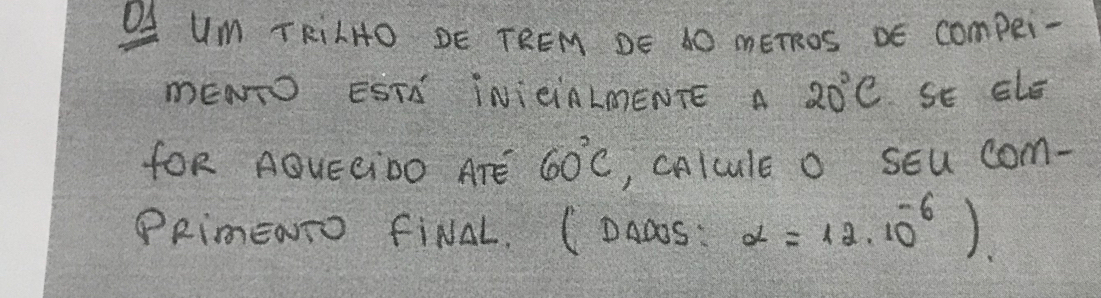 01 UM TRILHO DE TREM DE 10 METROS DE COMPRI-
MENTO ESTÁ INICIALMENTE A 20°C. SE ELE
FOR AQUECIDO ATÉ 60°C, CALCULE O SEU COM-
PRIMENTO FINAL. (DADOS: α = 12.10⁻⁶).